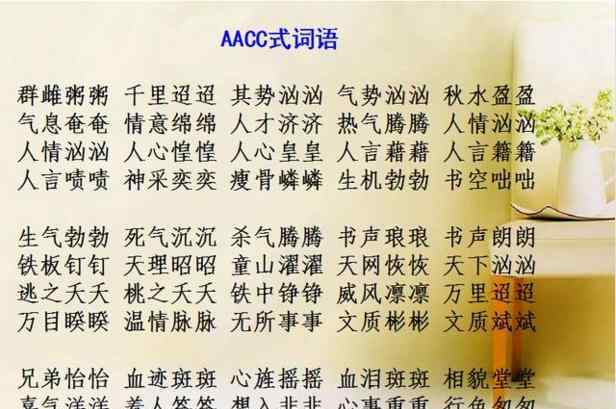 AACC式词语
群雌粥粥 千里迢迢 其势汹汹 气势汹汹 秋水盈盈
气息奄奄 情意绵绵 人才济济 热气腾腾 人情汹汹
人情汹汹 人心惶惶 人心皇皇 人言藉藉 人言籍籍
人言啧啧 神采奕奕 瘦骨嶙嶙 生机勃勃 书空咄咄
生气勃勃 死气沉沉 杀气腾腾 书声琅琅 书声朗朗
铁板钉钉 天理昭昭 童山濯濯 天网恢恢 天下汹汹
逃之夭夭 桃之夭夭 铁中铮铮 威风凛凛 万里迢迢
万目睽睽 温情脉脉 无所事事 文质彬彬 文质斌斌
兄弟怡怡 血迹斑斑 心旌摇摇 血泪斑斑 相貌堂堂
喜气洋洋 羞人答答 想入非非 心事重重 行色匆匆